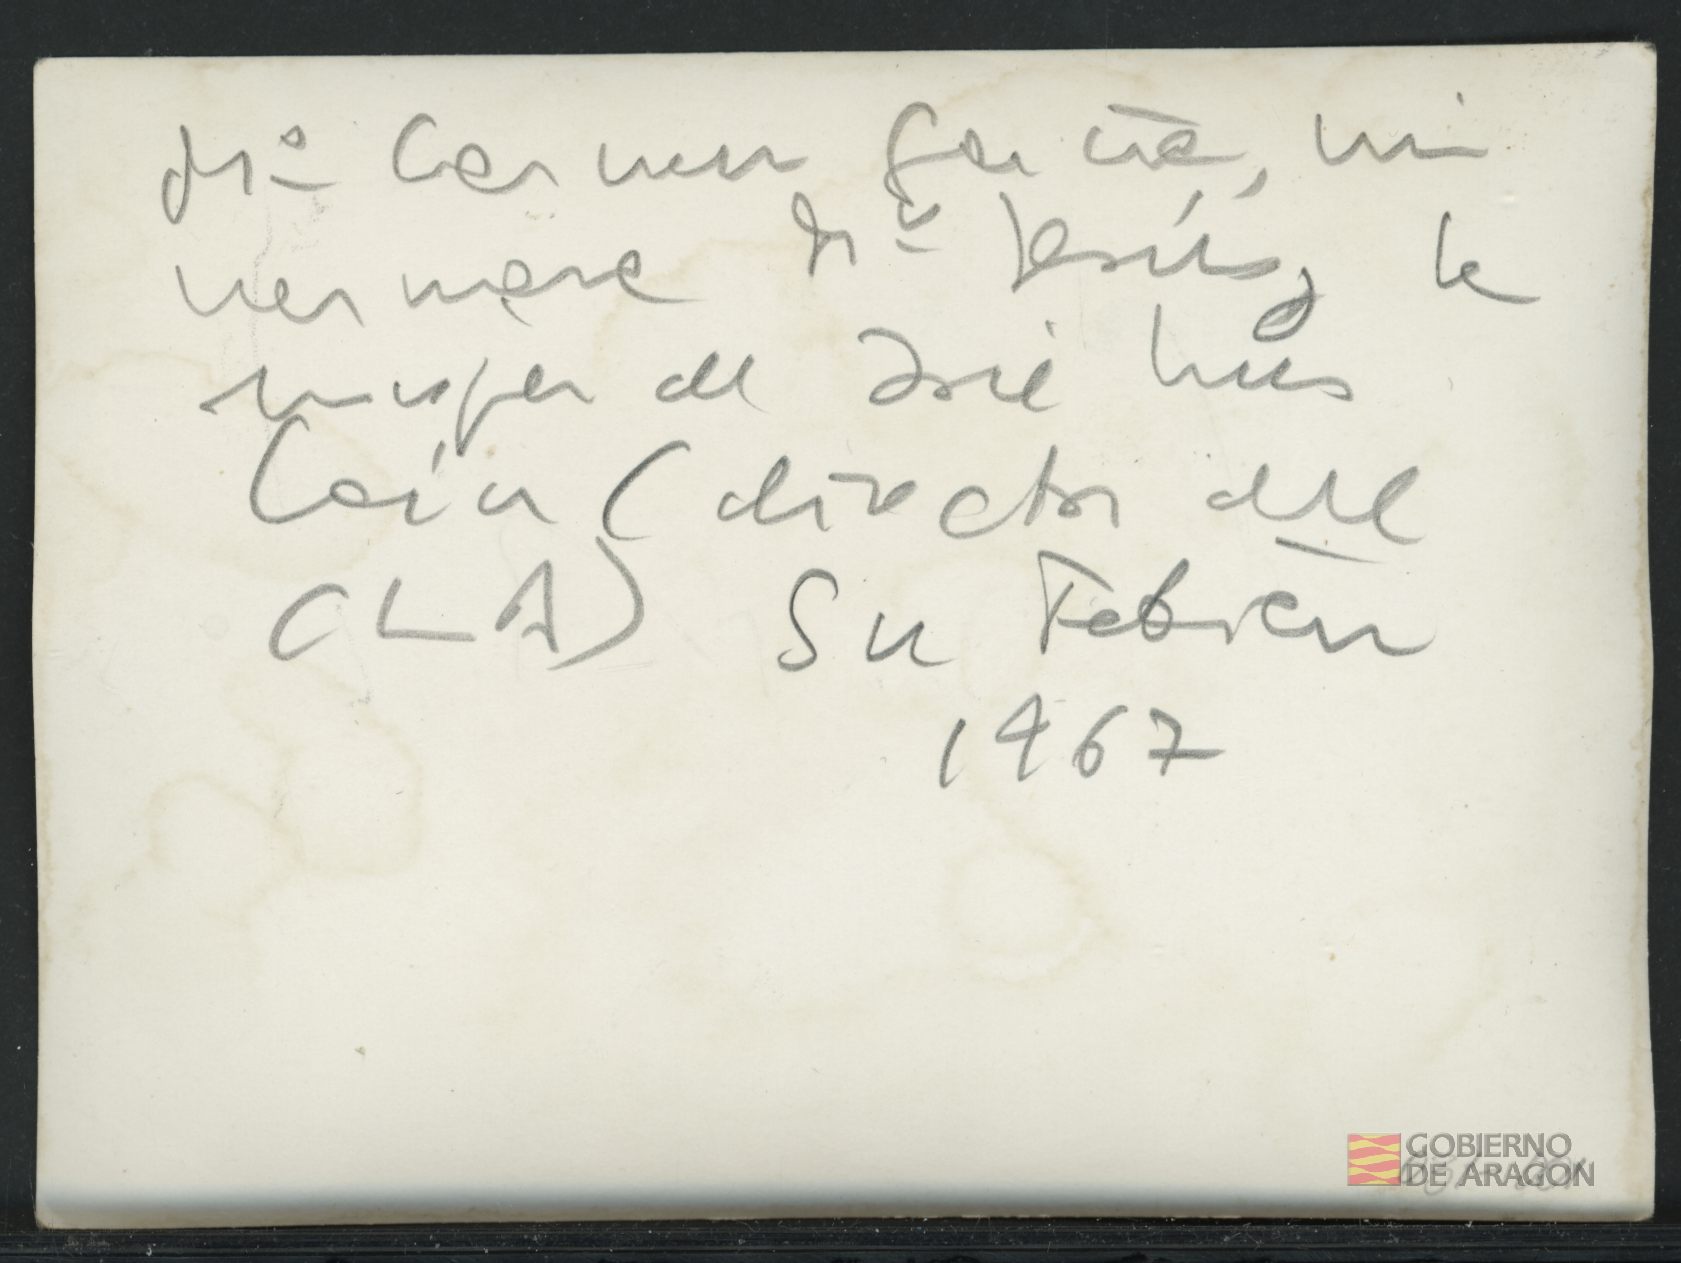 Mª Carmen García, mi
hermana Mª Jesús, la
mujer de José Luis
Laín (director del
CLA) Su Fabian
1967
GOBIERNO
DE ARAGON